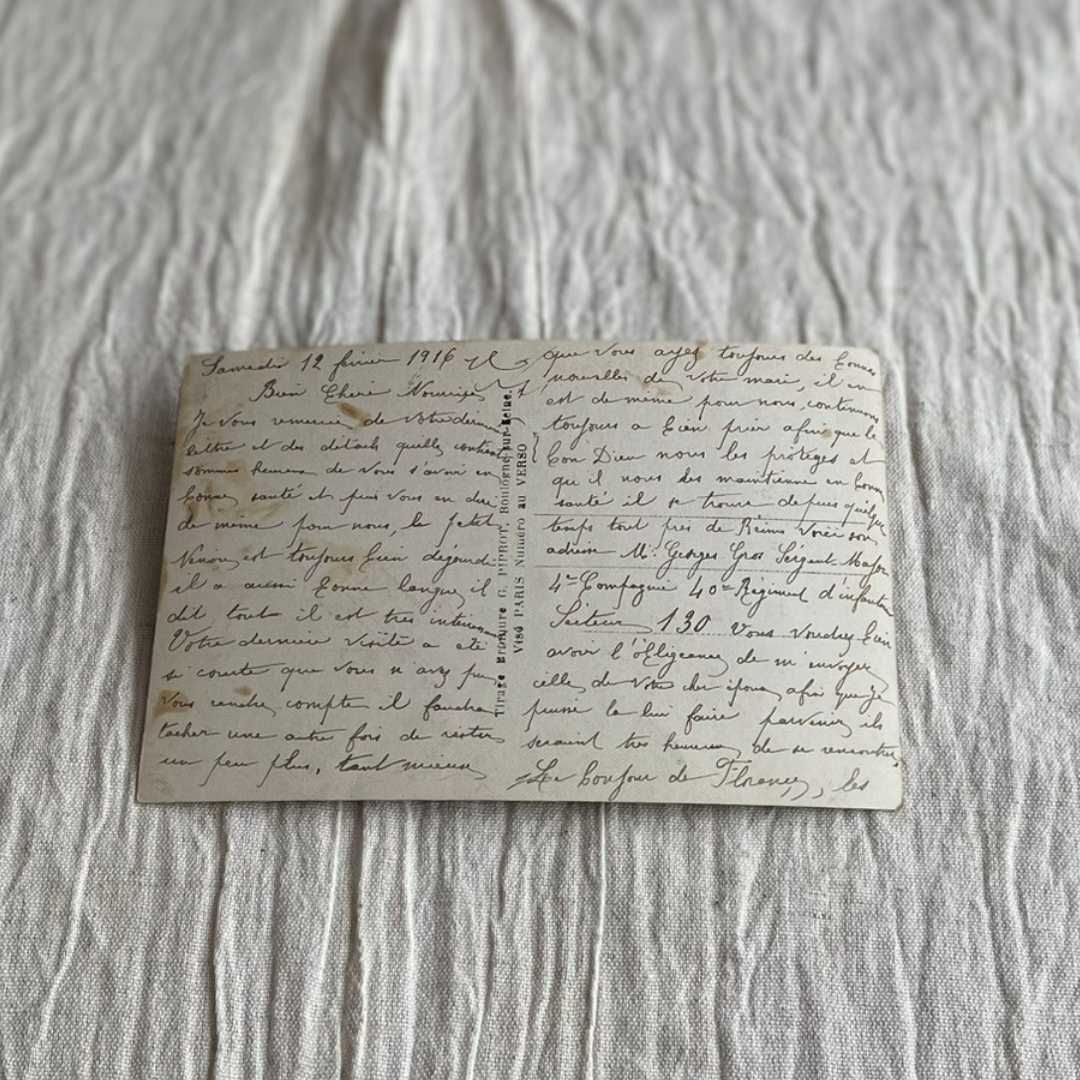 Samedi 12 février 1916
Bien Chère Nourrice
Je vous remercie de votre dernière
lettre et des détails quelle contient
sommes heureux de vous s'avoir en
bonne santé et puis vous en dire
de même pour nous, le petit
Ninou est toujours bien dégourdi
il a aussi bonne langue, il
dit tout il est très intéressant
Votre dernière visite a été
si courte que vous n'avez pu
vous rendre compte il faudra
tacher une autre fois de rester
un peu plus, tant mieux
que vous ayez toujours des bonnes
nouvelles de votre mari, il en
est de même pour nous, continuons
toujours a bien prier afin que le
bon Dieu nous les protèges et
qu'il nous les maintienne en bonne
santé il se trouve depuis quelque
temps tout près de Reims Voici son
adresse Mr. Georges Gros Sergent-Major
4me Compagnie 40me Régiment d'infanterie
Secteur 130 Vous voudrez bien
avoir l'obligeance de m'envoyer
celle de votre cher époux afin que je
puisse la lui faire parvenir ils
seraient très heureux de se rencontrer
Le bonjour de Florence, les
Tirage Bromure G. PIPROT, Boulogne-sur-Seine.
Visé PARIS Numéro au VERSO